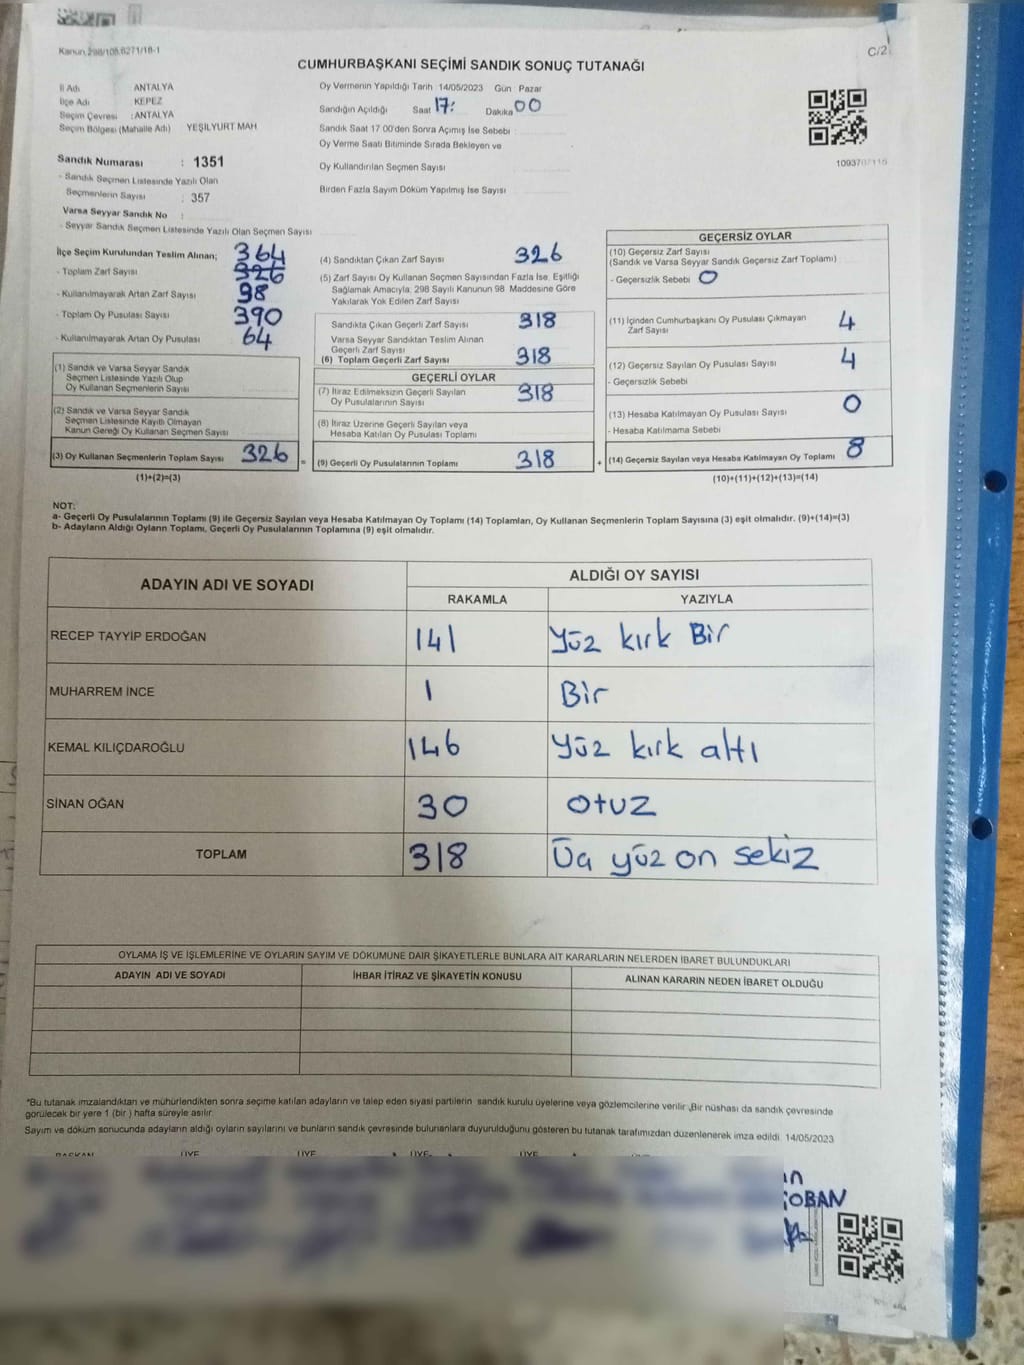 Kanun 298/106,6271/18-1
C/2
CUMHURBAŞKANI SEÇİMİ SANDIK SONUÇ TUTANAĞI
İl Adı ANTALYA
İlçe Adı KEPEZ
Seçim Çevresi : ANTALYA
Seçim Bölgesi (Mahalle Adı) YEŞİLYURT MAH
Sandık Numarası : 1351
- Sandık Seçmen Listesinde Yazılı Olan
Seçmenlerin Sayısı : 357
Varsa Seyyar Sandık No :
- Seyyar Sandık Seçmen Listesinde Yazılı Olan Seçmen Sayısı
Oy Vermenin Yapıldığı Tarih 14/05/2023 Gün Pazar
Sandığın Açıldığı Saat 17: Dakika 00
Sandık Saat 17 00'den Sonra Açımış İse Sebebi
Oy Verme Saati Bitiminde Sırada Bekleyen ve
Oy Kullandırılan Seçmen Sayısı
Birden Fazla Sayım Döküm Yapılmış İse Sayısı
İlçe Seçim Kurulundan Teslim Alınan; 364
- Toplam Zarf Sayısı 326
- Kullanılmayarak Artan Zarf Sayısı 98
- Toplam Oy Pusulası Sayısı 390
- Kullanılmayarak Artan Oy Pusulası 64
(1) Sandık ve Varsa Seyyar Sandık
Seçmen Listesinde Yazılı Olup
Oy Kullanan Seçmenlerin Sayısı
(2) Sandık ve Varsa Seyyar Sandık
Seçmen Listesinde Kayıtlı Olmayan
Kanun Gereği Oy Kullanan Seçmen Sayısı
(3) Oy Kullanan Seçmenlerin Toplam Sayısı 326 =
(1)+(2)=(3)
(4) Sandıktan Çıkan Zarf Sayısı 326
(5) Zarf Sayısı Oy Kullanan Seçmen Sayısından Fazla İse, Eşitliği
Sağlamak Amacıyla; 298 Sayılı Kanunun 98 Maddesine Göre
Yakılarak Yok Edilen Zarf Sayısı
Sandıkta Çıkan Geçerli Zarf Sayısı 318
Varsa Seyyar Sandıktan Teslim Alınan
Geçerli Zarf Sayısı
(6) Toplam Geçerli Zarf Sayısı 318
GEÇERLİ OYLAR
(7) İtiraz Edilmeksizin Geçerli Sayılan
Oy Pusulalarının Sayısı 318
(8) İtiraz Üzerine Geçerli Sayılan veya
Hesaba Katılan Oy Pusulası Toplamı
(9) Geçerli Oy Pusulalarının Toplamı 318 +
GEÇERSİZ OYLAR
(10) Geçersiz Zarf Sayısı
(Sandık ve Varsa Seyyar Sandık Geçersiz Zarf Toplamı)
- Geçersizlik Sebebi 0
(11) İçinden Cumhurbaşkanı Oy Pusulası Çıkmayan
Zarf Sayısı 4
(12) Geçersiz Sayılan Oy Pusulası Sayısı 4
- Geçersizlik Sebebi
(13) Hesaba Katılmayan Oy Pusulası Sayısı 0
- Hesaba Katılmama Sebebi
(14) Geçersiz Sayılan veya Hesaba Katılmayan Oy Toplamı 8
(10)+(11)+(12)+(13)=(14)
NOT:
a- Geçerli Oy Pusulalarının Toplamı (9) ile Geçersiz Sayılan veya Hesaba Katılmayan Oy Toplamı (14) Toplamları, Oy Kullanan Seçmenlerin Toplam Sayısına (3) eşit olmalıdır. (9)+(14)=(3)
b- Adayların Aldığı Oyların Toplamı, Geçerli Oy Pusulalarının Toplamına (9) eşit olmalıdır.
ADAYIN ADI VE SOYADI ALDIĞI OY SAYISI
RAKAMLA YAZIYLA
RECEP TAYYİP ERDOĞAN 141 Yüz kırk Bir
MUHARREM İNCE 1 Bir
KEMAL KILIÇDAROĞLU 146 Yüz kırk altı
SİNAN OĞAN 30 Otuz
TOPLAM 318 Üç yüz on sekiz
OYLAMA İŞ VE İŞLEMLERİNE VE OYLARIN SAYIM VE DÖKÜMÜNE DAİR ŞİKAYETLERLE BUNLARA AİT KARARLARIN NELERDEN İBARET BULUNDUKLARI
ADAYIN ADI VE SOYADI İHBAR İTİRAZ VE ŞİKAYETİN KONUSU ALINAN KARARIN NEDEN İBARET OLDUĞU
*Bu tutanak imzalandıktan ve mühürlendikten sonra seçime katılan adayların ve talep eden siyasi partilerin sandık kurulu üyelerine veya gözlemcilerine verilir ,Bir nüshası da sandık çevresinde
görülecek bir yere 1 (bir ) hafta süreyle asılır.
Sayım ve döküm sonucunda adayların aldığı oyların sayılarını ve bunların sandık çevresinde bulunanlara duyurulduğunu gösteren bu tutanak tarafımızdan düzenlenerek imza edildi. 14/05/2023
BAŞKAN ÜYE ÜYE ÜYE ÜYE